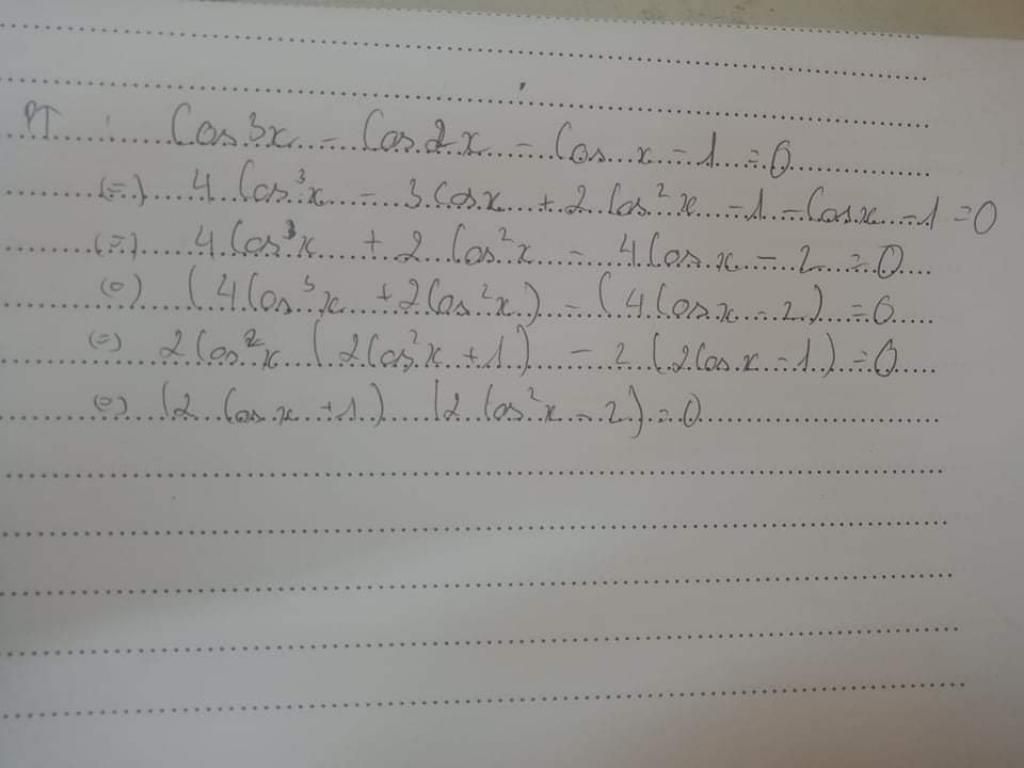 PT : Cos 3x - Cos 2x - Cos x - 1 = 0
(=) 4 Cos³x - 3 Cosx + 2 Cos²x - 1 - Cosx - 1 = 0
(=) 4 Cos³x + 2 Cos²x - 4 Cos x - 2 = 0
(=) (4 Cos³x + 2 Cos²x) - (4 Cos x - 2) = 0
(=) 2 Cos²x (2 Cos²x + 1) - 2 (2 Cos x - 1) = 0
(=) (2 Cos x + 1) (2 Cos²x - 2) = 0